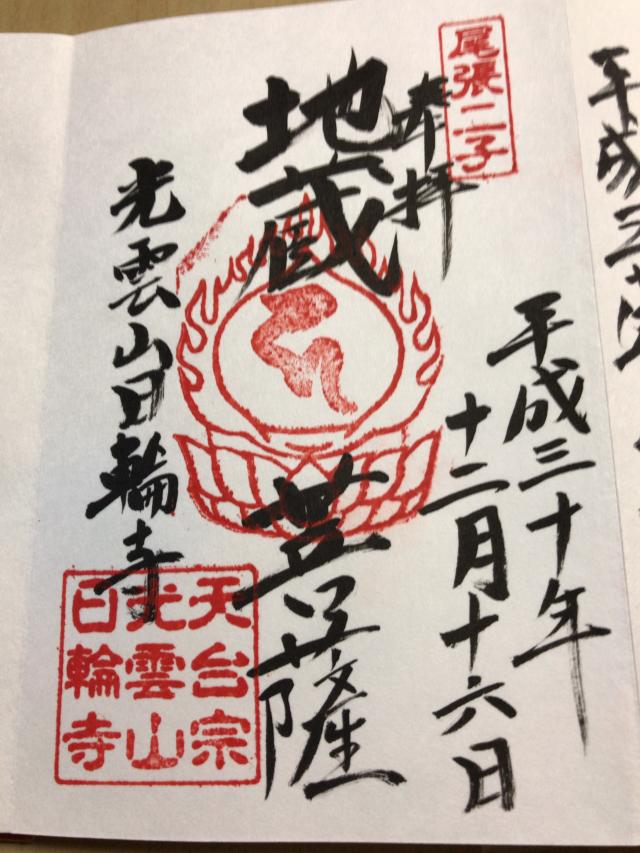 平成三十
尾張二子
奉拝
平成三十年
十二月十六日
地蔵菩薩
光雲山日輪寺
天台宗
光雲山
日輪寺